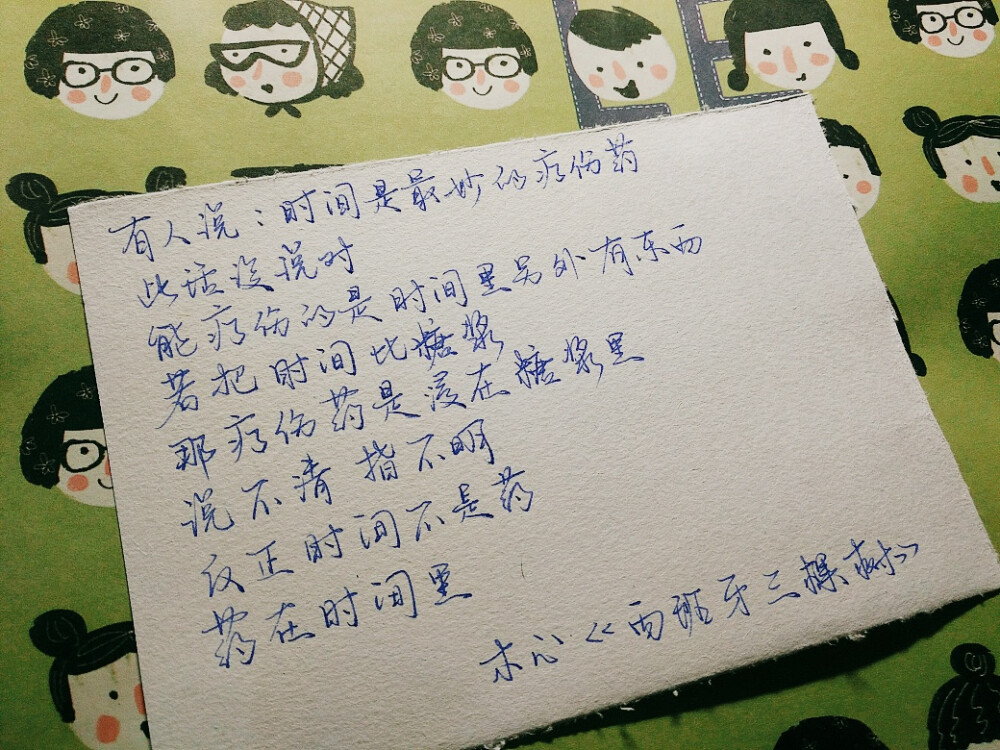 LE
有人说：时间是最妙的疗伤药
此话没说对
能疗伤的是时间里另外有东西
若把时间比糖浆
那疗伤药是浸在糖浆里
说不清 指不明
反正时间不是药
药在时间里
木心《西班牙三棵树》